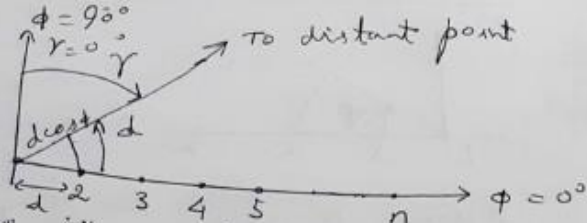 φ = 90°
γ = 0°
γ
To distant point
d cosφ
d
d
2
3
4
5
n
φ = 0°